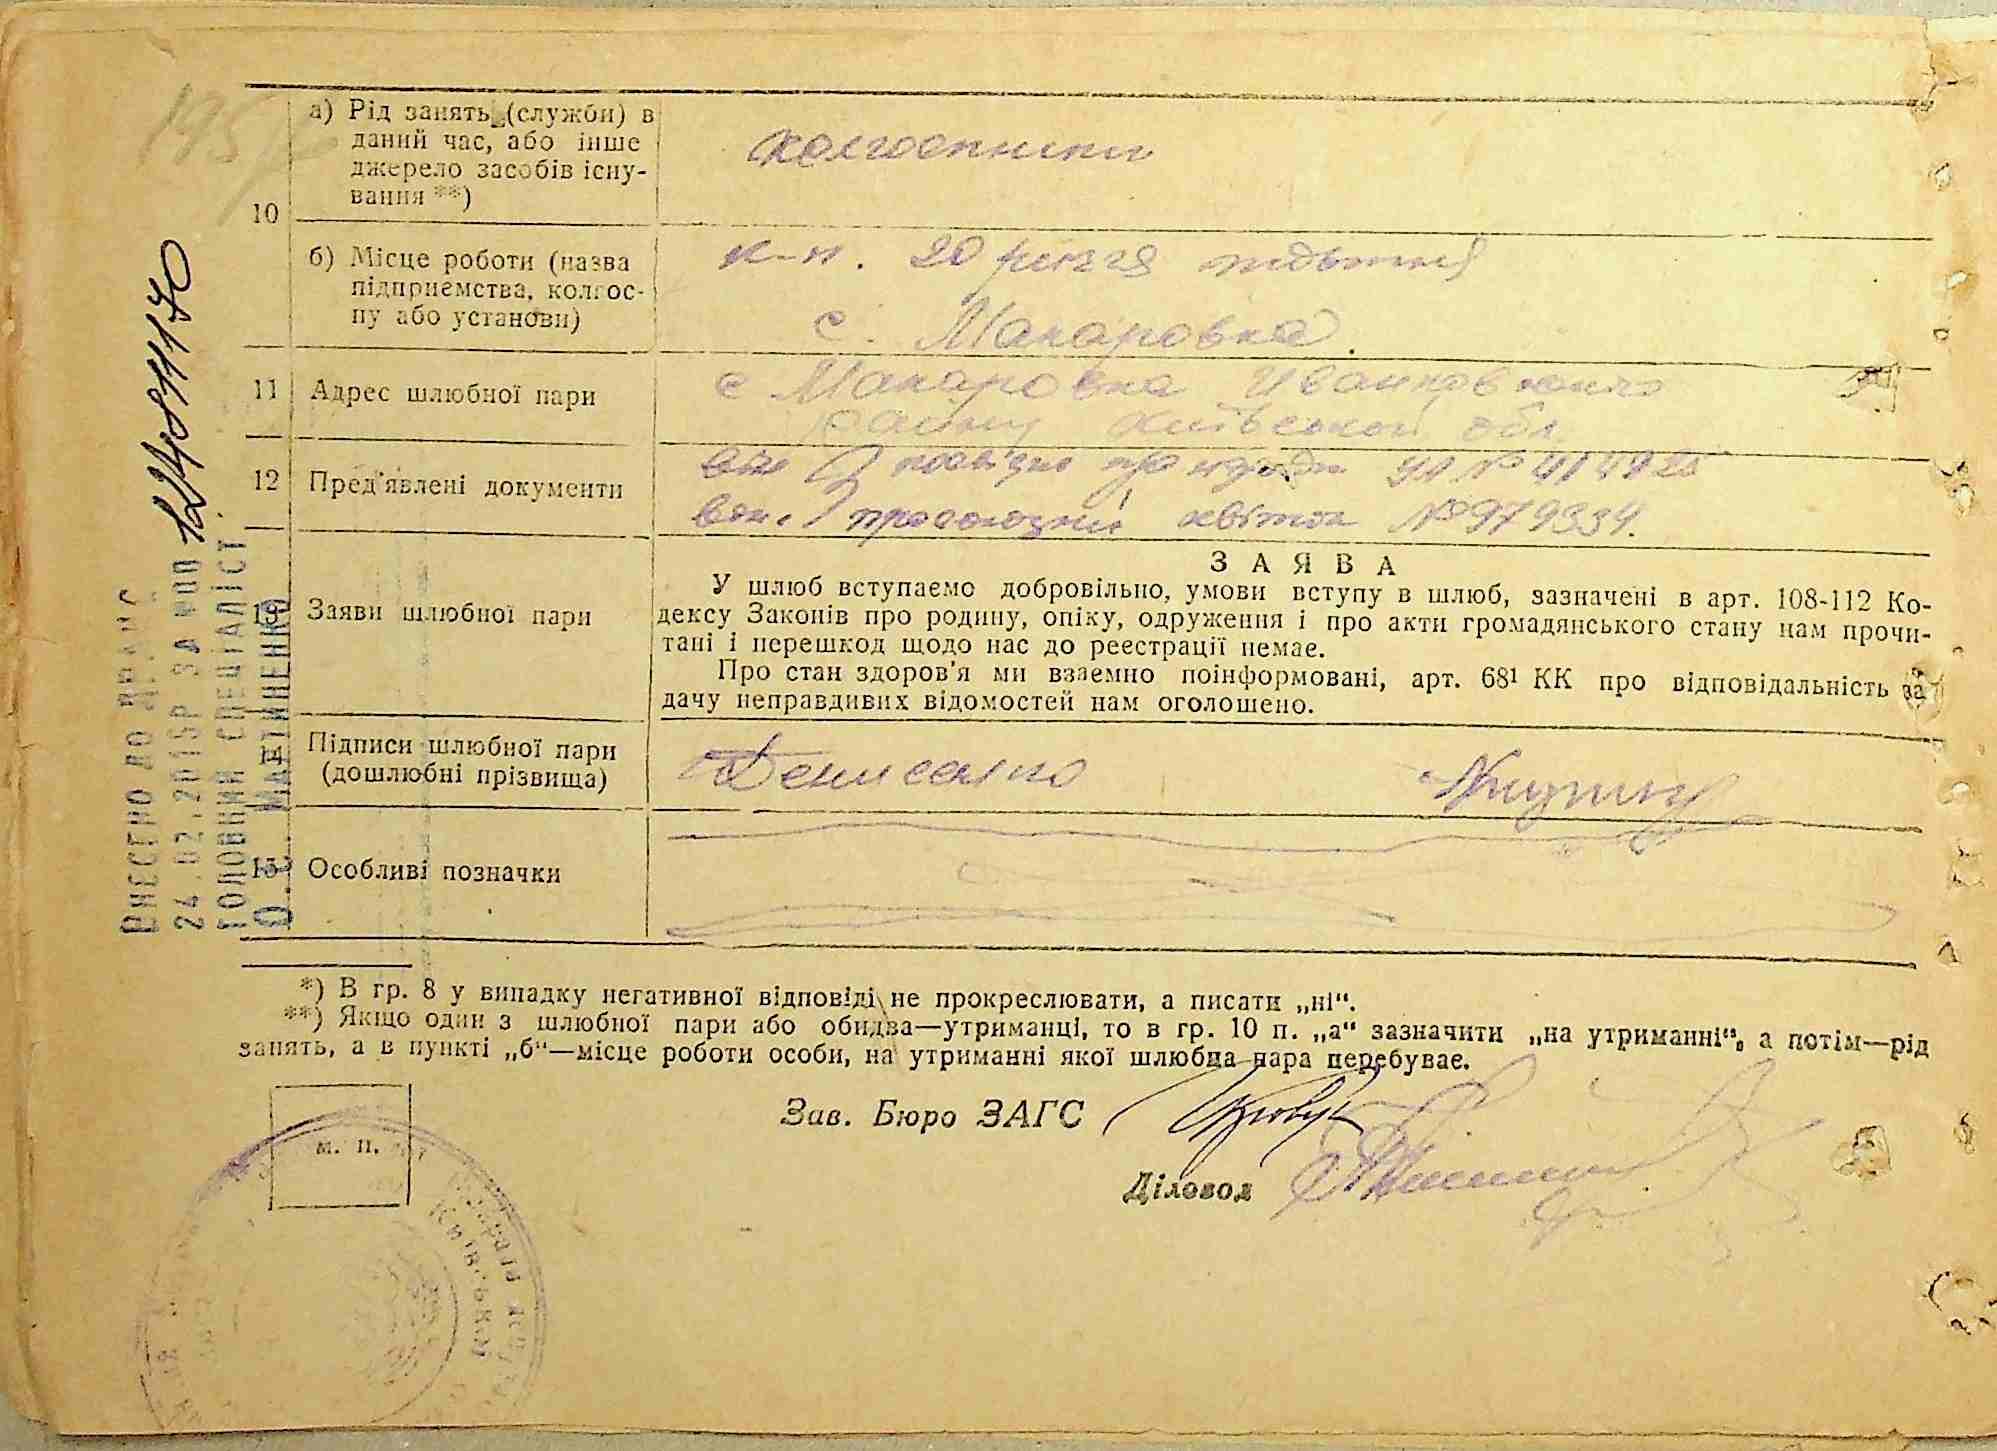 а) Рід занять (служби) в
даний час, або інше
джерело засобів існу-
вання **)
10
колгоспники
б) Місце роботи (назва
підприємства, колгос-
пу або установи)
к-п. 20 річчя жовтня
с. Макаровка
11 Адрес шлюбної пари
с Макаровка Иванковського
району Київської обл.
12 Пред'явлені документи
він посвідка про народж УЛ №
вона профсоюзний квіток № 979334.
13 Заяви шлюбної пари
ЗАЯВА
У шлюб вступаємо добровільно, умови вступу в шлюб, зазначені в арт. 108-112 Ко-
дексу Законів про родину, опіку, одруження і про акти громадянського стану нам прочи-
тані і перешкод щодо нас до реєстрації немає.
Про стан здоров'я ми взаємно поінформовані, арт. 68¹ КК про відповідальність за
дачу неправдивих відомостей нам оголошено.
14 Підписи шлюбної пари
(дошлюбні прізвища)
Денисенко
15 Особливі позначки
*) В гр. 8 у випадку негативної відповіді не прокреслювати, а писати „ні“.
**) Якщо один з шлюбної пари або обидва—утриманці, то в гр. 10 п. „а“ зазначити „на утриманні“, а потім—рід
занять, а в пункті „б“—місце роботи особи, на утриманні якої шлюбна пара перебуває.
Зав. Бюро ЗАГС
Діловод
м. п.
Київської
ВНЕСЕНО ДО
24.02.2015Р ЗА №00 12481170
ГОЛОВНИЙ СПЕЦІАЛІСТ
О. МАРТИНЕНКО